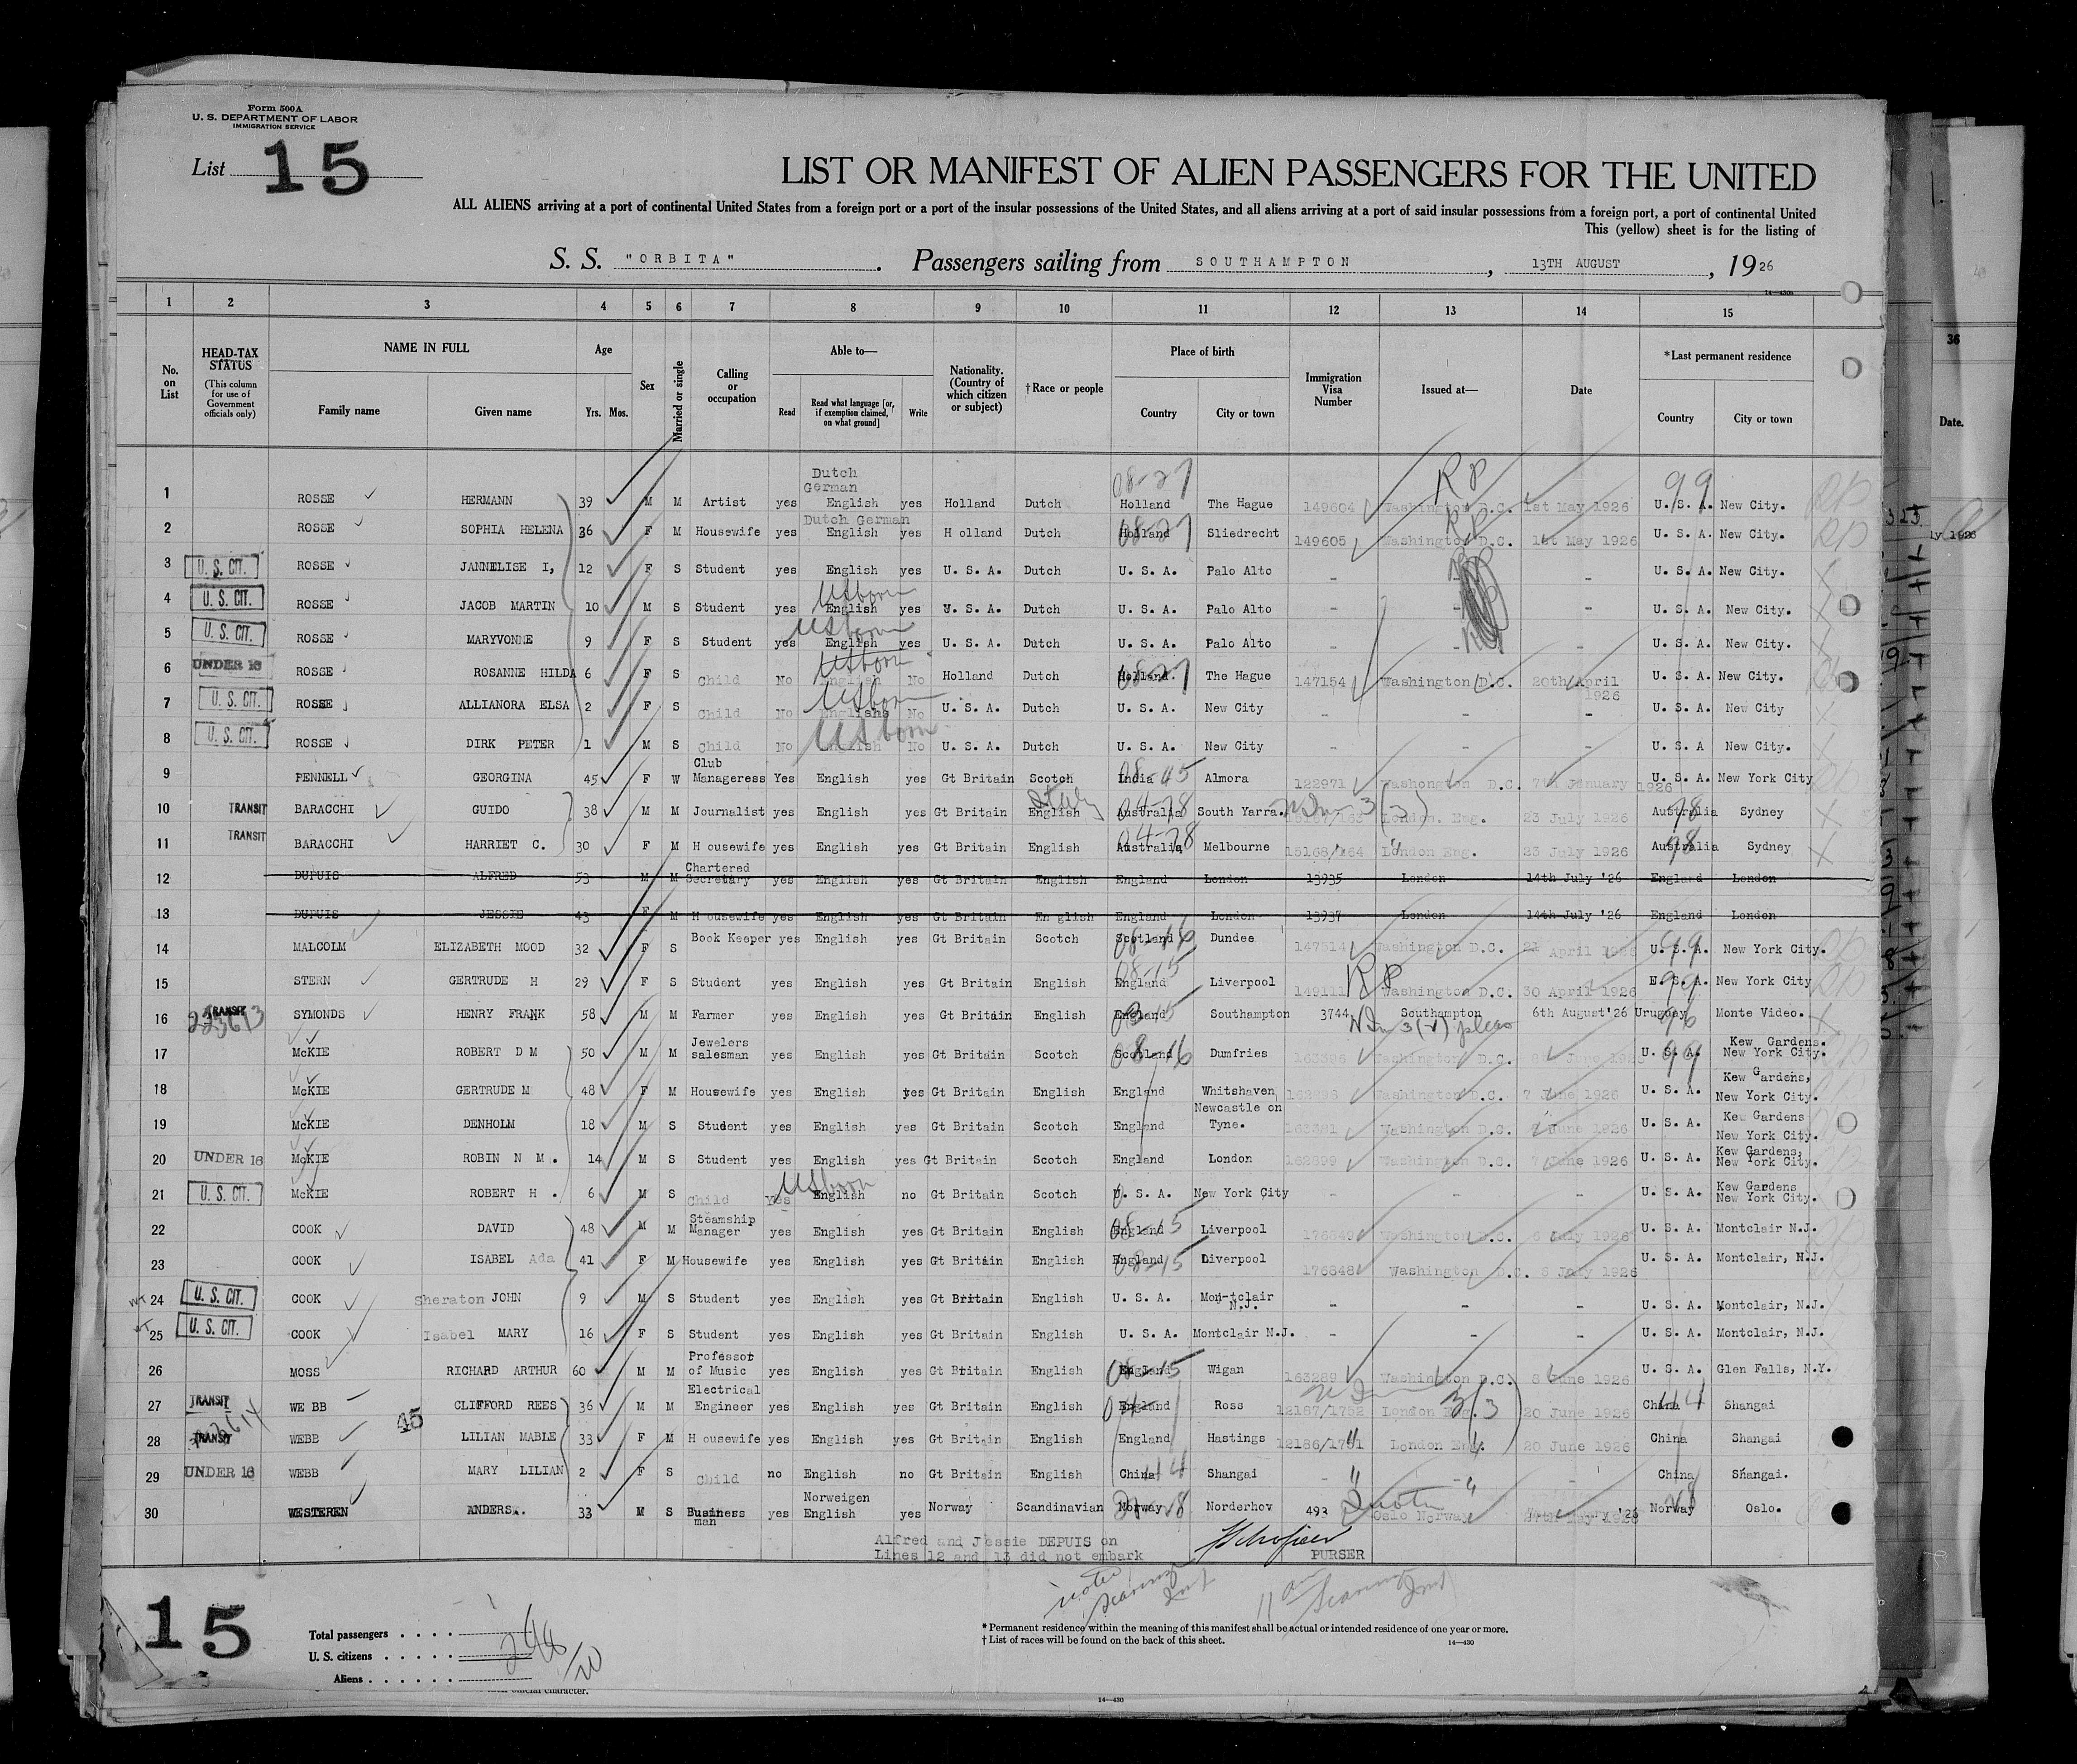 Form 500A
U. S. DEPARTMENT OF LABOR
IMMIGRATION SERVICE
List 15
LIST OR MANIFEST OF ALIEN PASSENGERS FOR THE UNITED
ALL ALIENS arriving at a port of continental United States from a foreign port or a port of the insular possessions of the United States, and all aliens arriving at a port of said insular possessions from a foreign port, a port of continental United
This (yellow) sheet is for the listing of
S. S. "ORBITA". Passengers sailing from SOUTHAMPTON, 13TH AUGUST, 1926
1 2 3 4 5 6 7 8 9 10 11 12 13 14 15
No. on List
HEAD-TAX STATUS (This column for use of Government officials only)
NAME IN FULL Family name Given name
Age Yrs. Mos.
Sex
Married or single
Calling or occupation
Able to— Read Read what language [or, if exemption claimed, on what ground] Write
Nationality. (Country of which citizen or subject)
†Race or people
Place of birth Country City or town
Immigration Visa Number
Issued at—
Date
*Last permanent residence Country City or town
36
Date.
1 ROSSE HERMANN 39 M M Artist yes Dutch German English yes Holland Dutch Holland The Hague 149604 Washington D.C. 1st May 1926 U. S. A. New City.
2 ROSSE SOPHIA HELENA 36 F M Housewife yes Dutch German English yes H olland Dutch Holland Sliedrecht 149605 Washington D.C. 1st May 1926 U. S. A. New City.
3 U. S. CIT. ROSSE JANNELISE I, 12 F S Student yes English yes U. S. A. Dutch U. S. A. Palo Alto - - - U. S. A. New City.
4 U. S. CIT. ROSSE JACOB MARTIN 10 M S Student yes English yes U. S. A. Dutch U. S. A. Palo Alto - - - U. S. A. New City.
5 U. S. CIT. ROSSE MARYVONNE 9 F S Student yes English yes U. S. A. Dutch U. S. A. Palo Alto - - - U. S. A. New City.
6 UNDER 16 ROSSE ROSANNE HILDA 6 F S Child No English No Holland Dutch Holland The Hague 147154 Washington D.C. 20th April 1926 U. S. A. New City.
7 U. S. CIT. ROSSE ALLIANORA ELSA 2 F S Child No Englishs No U. S. A. Dutch U. S. A. New City - - - U. S. A. New City
8 U. S. CIT. ROSSE DIRK PETER 1 M S Child No English No U. S. A. Dutch U. S. A. New City - - - U. S. A New City.
9 PENNELL GEORGINA 45 F W Club Manageress Yes English yes Gt Britain Scotch India Almora 122971 Washongton D.C. 7th January 1926 U. S. A. New York City
10 TRANSIT BARACCHI GUIDO 38 M M Journalist yes English yes Gt Britain English Australia South Yarra. London. Eng. 23 July 1926 Australia Sydney
11 TRANSIT BARACCHI HARRIET C. 30 F M H ousewife yes English yes Gt Britain English Australia Melbourne 15168/164 London Eng. 23 July 1926 Australia Sydney
12 DUPUIS ALFRED 53 M M Chartered Secretary yes English yes Gt Britain English England London 13935 London 14th July '26 England London
13 DUPUIS JESSIE 43 F M H ousewife yes English yes Gt Britain En glish England London 13937 London 14th July '26 England London
14 MALCOLM ELIZABETH MOOD 32 F S Book Keeper yes English yes Gt Britain Scotch Scotland Dundee 147514 Washington D.C. 21 April 1926 U. S. A. New York City.
15 STERN GERTRUDE H 29 F S Student yes English yes Gt Britain English England Liverpool 149111 Washington D.C. 30 April 1926 U. S. A. New York City
16 TRANSIT SYMONDS HENRY FRANK 58 M M Farmer yes English yes Gt Britain English England Southampton 3744 Southampton 6th August'26 Uruguay Monte Video.
17 McKIE ROBERT D M 50 M M Jewelers salesman yes English yes Gt Britain Scotch Scotland Dumfries 163396 Washington D.C. 8 June 1926 U. S. A. Kew Gardens. New York City.
18 McKIE GERTRUDE M 48 F M Housewife yes English yes Gt Britain English England Whitshaven Washington D.C. 7 June 1926 U. S. A. Kew Gardens, New York City.
19 McKIE DENHOLM 18 M S Student yes English yes Gt Britain Scotch England Newcastle on Tyne. 163391 Washington D.C. June 1926 U. S. A. Kew Gardens New York City.
20 UNDER 16 McKIE ROBIN N M. 14 M S Student yes English yes Gt Britain Scotch England London 162899 Washington D.C. 7 June 1926 U. S. A. Kew Gardens, New York City.
21 U. S. CIT. McKIE ROBERT H . 6 M S Child Yes English no Gt Britain Scotch U. S. A. New York City - - - U. S. A. Kew Gardens New York City.
22 COOK DAVID 48 M M Steamship Manager yes English yes Gt Britain English England Liverpool 176849 Washington D.C. 6 July 1926 U. S. A. Montclair N.J.
23 COOK ISABEL Ada 41 F M Housewife yes English yes Gt Britain English England Liverpool 176848 Washington D.C. 6 July 1926 U. S. A. Montclair, N.J.
24 U. S. CIT. COOK Sheraton JOHN 9 M S Student yes English yes Gt Britain English U. S. A. Mon-tclair N.J. - - - U. S. A. Montclair, N.J.
25 U. S. CIT. COOK Isabel MARY 16 F S Student yes English yes Gt Britain English U. S. A. Montclair N.J. - - - U. S. A. Montclair, N.J.
26 MOSS RICHARD ARTHUR 60 M M Professor of Music yes English yes Gt Britain English England Wigan 163289 Washington D.C. 8 June 1926 U. S. A. Glen Falls, N.Y.
27 TRANSIT WE BB CLIFFORD REES 36 M M Electrical Engineer yes English yes Gt Britain English England Ross 12187/1752 London Eng. 20 June 1926 China Shangai
28 TRANSIT WEBB 45 LILIAN MABLE 33 F M H ousewife yes English yes Gt Britain English England Hastings 12186/1751 London Eng. 20 June 1926 China Shangai
29 UNDER 16 WEBB MARY LILIAN 2 F S Child no English no Gt Britain English China Shangai - - - China Shangai.
30 WESTEREN ANDERS. 33 M S Business man yes Norweigen English yes Norway Scandinavian Norway Norderhov 493 Oslo Norway Norway Oslo.
Alfred and Jessie DEPUIS on
Lines 12 and 13 did not embark
PURSER
15
Total passengers . . . .
U. S. citizens . . . . .
Aliens . . . . . .
*Permanent residence within the meaning of this manifest shall be actual or intended residence of one year or more.
†List of races will be found on the back of this sheet.
14—430
14—430